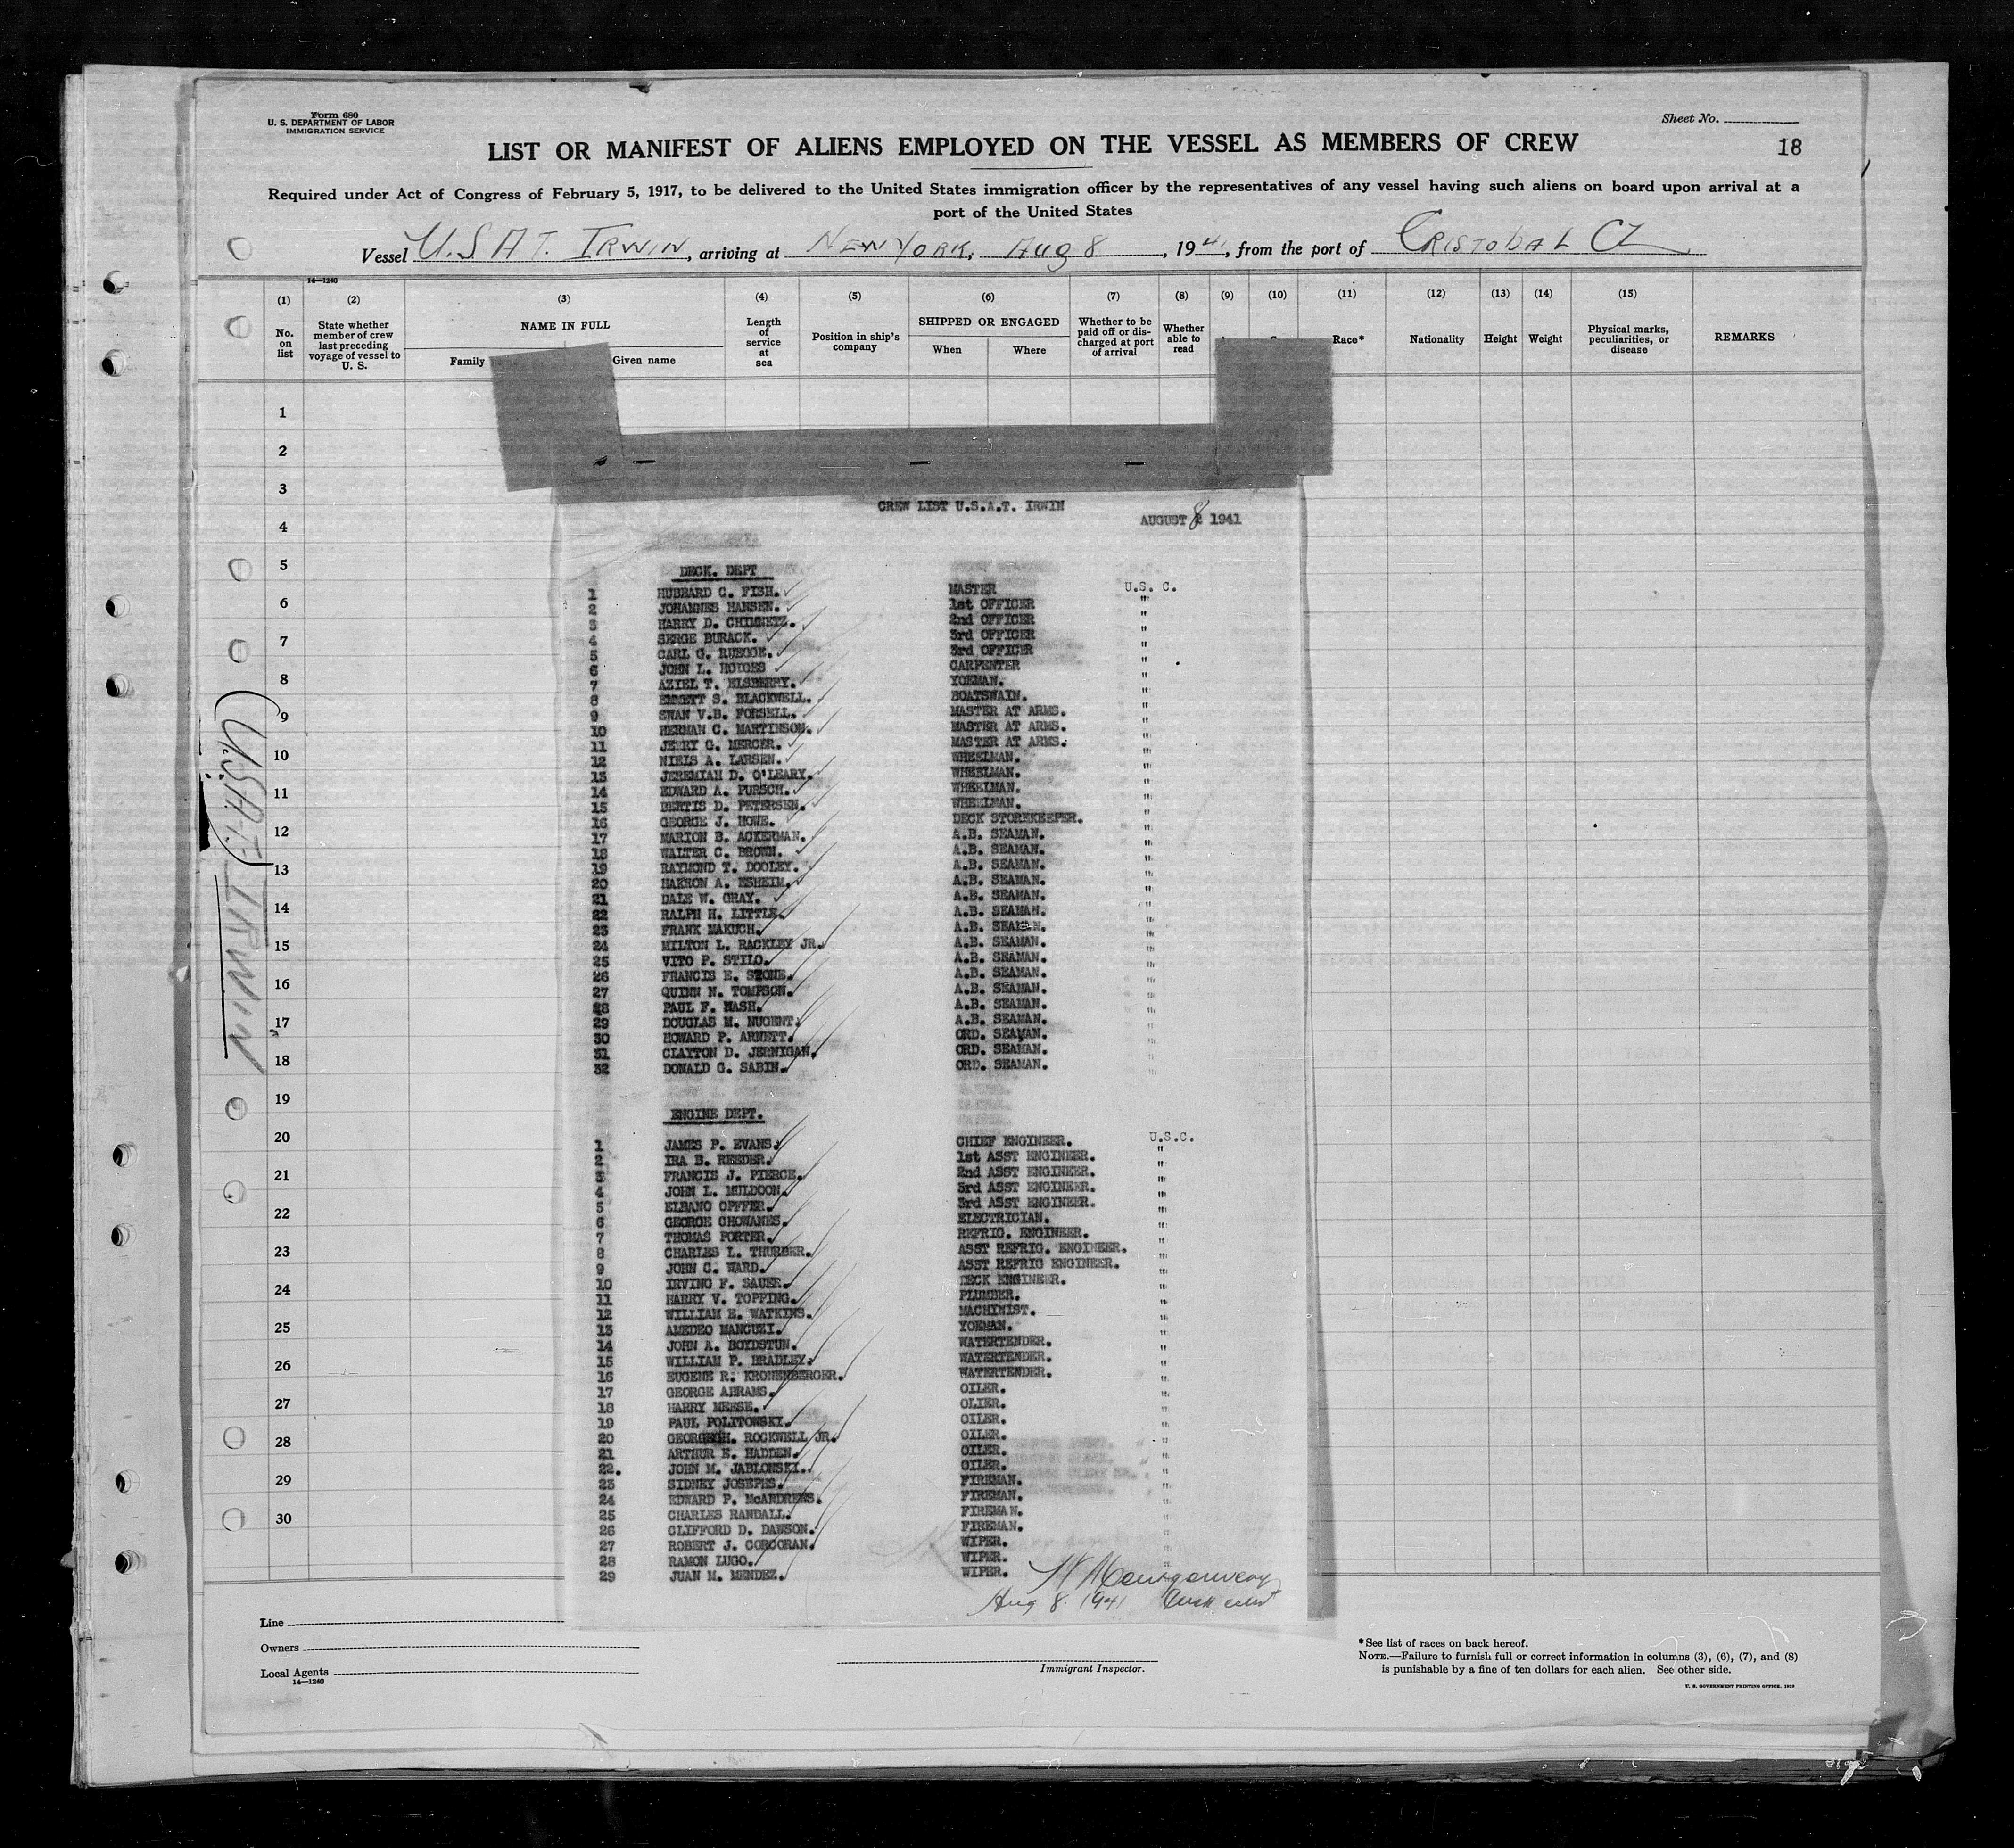 Form 680
U. S. DEPARTMENT OF LABOR
IMMIGRATION SERVICE
Sheet No.
18
LIST OR MANIFEST OF ALIENS EMPLOYED ON THE VESSEL AS MEMBERS OF CREW
Required under Act of Congress of February 5, 1917, to be delivered to the United States immigration officer by the representatives of any vessel having such aliens on board upon arrival at a
port of the United States
Vessel U.S.A.T. IRWIN, arriving at NEW YORK, Aug 8, 1941, from the port of CRISTOBAL CZ
14—1240
(1) (2) (3) (4) (5) (6) (7) (8) (9) (10) (11) (12) (13) (14) (15)
No. on list
State whether member of crew last preceding voyage of vessel to U. S.
NAME IN FULL
Family
Given name
Length of service at sea
Position in ship's company
SHIPPED OR ENGAGED
When
Where
Whether to be paid off or discharged at port of arrival
Whether able to read
Race*
Nationality
Height
Weight
Physical marks, peculiarities, or disease
REMARKS
1
2
3
4
5
6
7
8
9
10
11
12
13
14
15
16
17
18
19
20
21
22
23
24
25
26
27
28
29
30
(U.S.A.T.) IRWIN
CREW LIST U.S.A.T. IRWIN
AUGUST 8 1941
DECK. DEPT
1 HUBBARD C. FISH. MASTER U.S. C.
2 JOHANNES HANSEN. 1st OFFICER "
3 HARRY D. CHIMNETZ. 2nd OFFICER "
4 SERGE BURACK. 3rd OFFICER "
5 CARL G. RUEGGE. 3rd OFFICER "
6 JOHN L. HODGES CARPENTER "
7 AZIEL T. ELSBERRY. YOEMAN. "
8 EMMETT S. BLACKWELL. BOATSWAIN. "
9 SWAN V.B. FORSELL. MASTER AT ARMS. "
10 HERMAN C. MARTINSON. MASTER AT ARMS. "
11 JERRY G. MERCER. MASTER AT ARMS. "
12 NIELS A. LARSEN. WHEELMAN. "
13 JEREMIAH D. O'LEARY. WHEELMAN. "
14 EDWARD A. PURSCH. WHEELMAN. "
15 BERTIS D. PETERSEN. WHEELMAN. "
16 GEORGE J. HOWE. DECK STOREKEEPER. "
17 MARION B. ACKERMAN. A.B. SEAMAN. "
18 WALTER C. BROWN. A.B. SEAMAN. "
19 RAYMOND T. DOOLEY. A.B. SEAMAN. "
20 HAKRON A. ESHEIM. A.B. SEAMAN. "
21 DALE W. GRAY. A.B. SEAMAN. "
22 RALPH H. LITTLE. A.B. SEAMAN. "
23 FRANK MAKUCH. A.B. SEAMAN. "
24 MILTON L. RACKLEY JR. A.B. SEAMAN. "
25 VITO P. STILO. A.B. SEAMAN. "
26 FRANCIS E. STONE. A.B. SEAMAN. "
27 QUINN N. TOMPSON. A.B. SEAMAN. "
28 PAUL F. WASH. A.B. SEAMAN. "
29 DOUGLAS M. NUGENT. A.B. SEAMAN. "
30 HOWARD P. ARNETT. ORD. SEAMAN. "
31 CLAYTON D. JERNIGAN. ORD. SEAMAN. "
32 DONALD G. SABIN. ORD. SEAMAN. "
ENGINE DEPT.
1 JAMES P. EVANS. CHIEF ENGINEER. U.S.C.
2 IRA B. REEDER. 1st ASST ENGINEER. "
3 FRANCIS J. PIERCE. 2nd ASST ENGINEER. "
4 JOHN L. MULDOON. 3rd ASST ENGINEER. "
5 ELBANO OPFFER. 3rd ASST ENGINEER. "
6 GEORGE CHOWANES. ELECTRICIAN. "
7 THOMAS PORTER. REFRIG. ENGINEER. "
8 CHARLES L. THURBER. ASST REFRIG. ENGINEER. "
9 JOHN C. WARD. ASST REFRIG ENGINEER. "
10 IRVING F. SAUER. DECK ENGINEER. "
11 HARRY V. TOPPING. PLUMBER. "
12 WILLIAM E. WATKINS. MACHINIST. "
13 AMEDEO MANCUZI. YOEMAN. "
14 JOHN A. BOYDSTUN. WATERTENDER. "
15 WILLIAM P. BRADLEY. WATERTENDER. "
16 EUGENE R. KRONENBERGER. WATERTENDER. "
17 GEORGE ABRAMS. OILER. "
18 HARRY MEESE. OLIER. "
19 PAUL POLITOWSKI. OILER. "
20 GEORGE H. ROCKWELL JR. OILER. "
21 ARTHUR E. HADDEN. OILER. "
22. JOHN M. JABLONSKI. OILER. "
23 SIDNEY JOSEPHS. FIREMAN. "
24 EDWARD P. McANDREWS. FIREMAN. "
25 CHARLES RANDALL. FIREMAN. "
26 CLIFFORD D. DAWSON. FIREMAN. "
27 ROBERT J. CORCORAN. WIPER. "
28 RAMON LUGO. WIPER. "
29 JUAN M. MENDEZ. WIPER.
W Montgomery
Aug 8 1941
Line
Owners
Local Agents
14—1240
Immigrant Inspector.
*See list of races on back hereof.
NOTE.—Failure to furnish full or correct information in columns (3), (6), (7), and (8)
is punishable by a fine of ten dollars for each alien. See other side.
U. S. GOVERNMENT PRINTING OFFICE. 1929